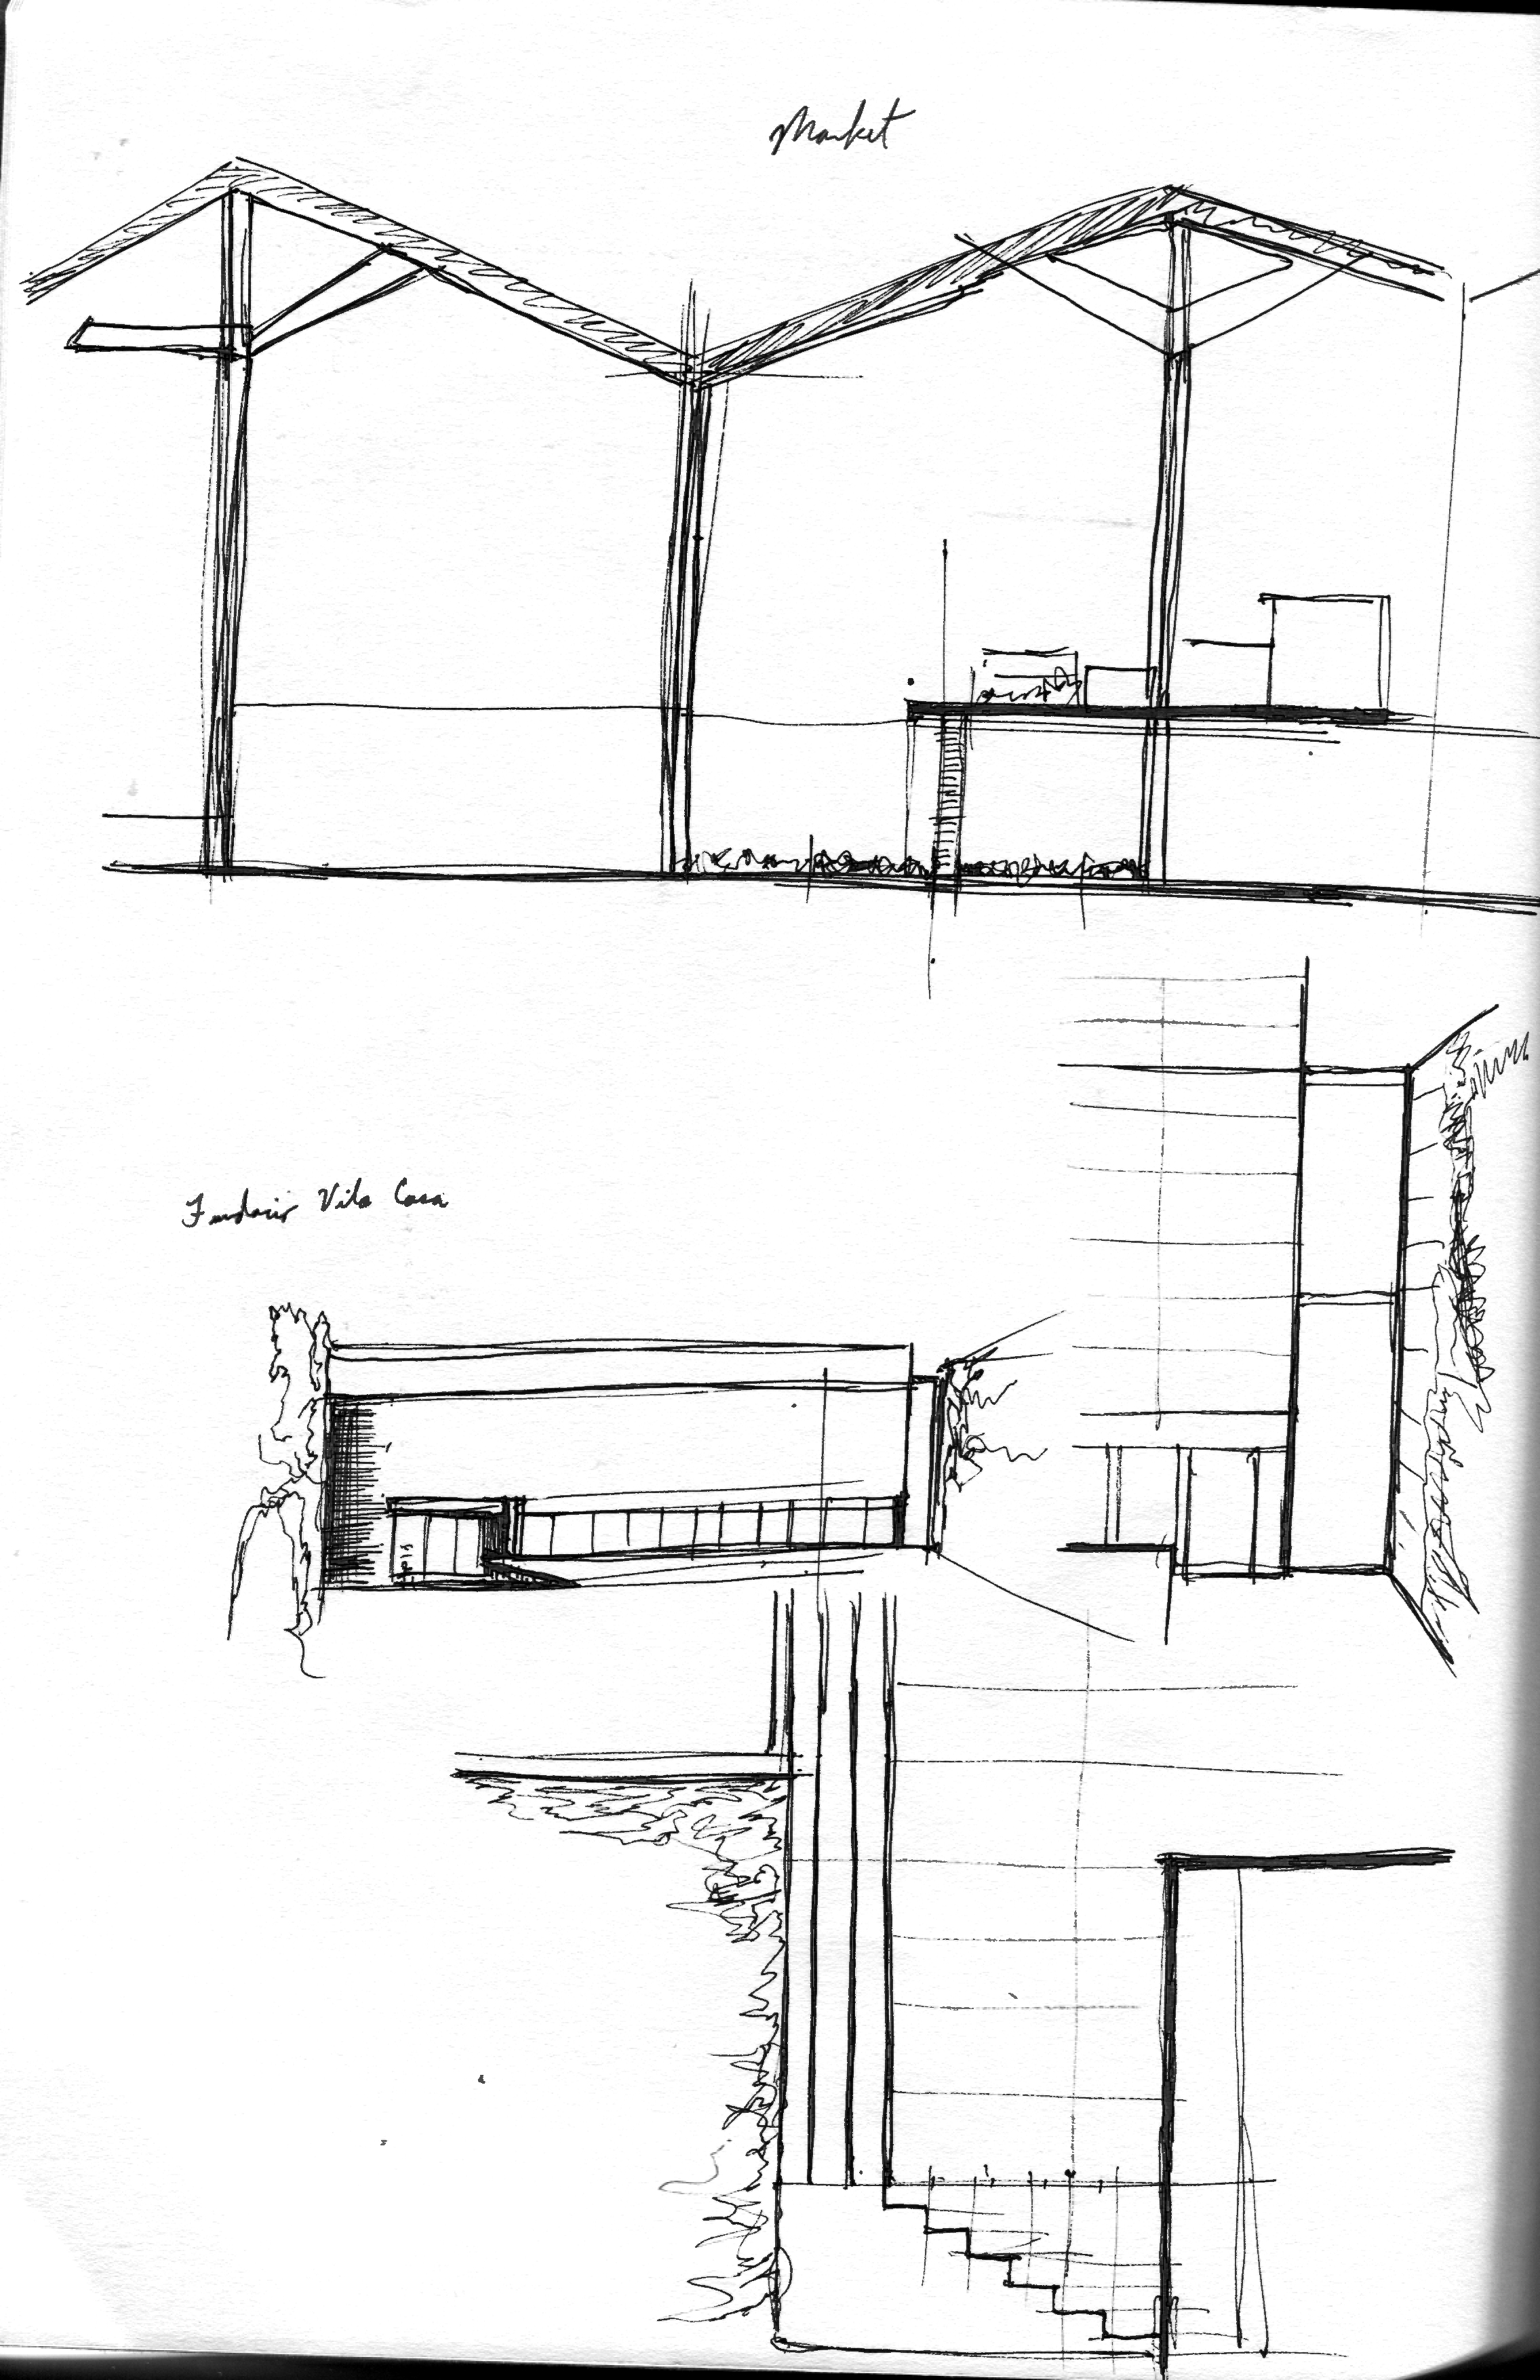 Market
Fundacio Vila Casa